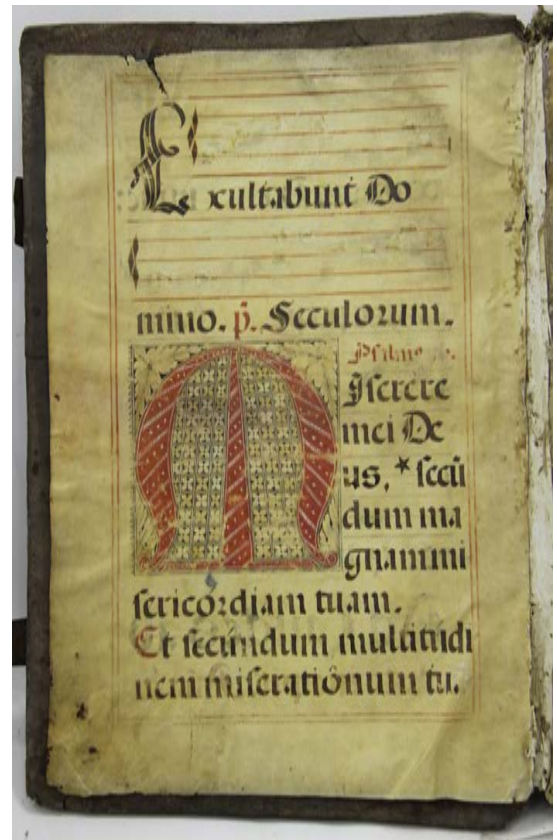 Exultabunt Do
mino. p̃. Seculorum.
Psalmo
MIserere
mei De
us, * secũ
dum ma
gnam mi
sericordiam tuam.
Et secúndum multitúdi
nem miseratiônum tu.